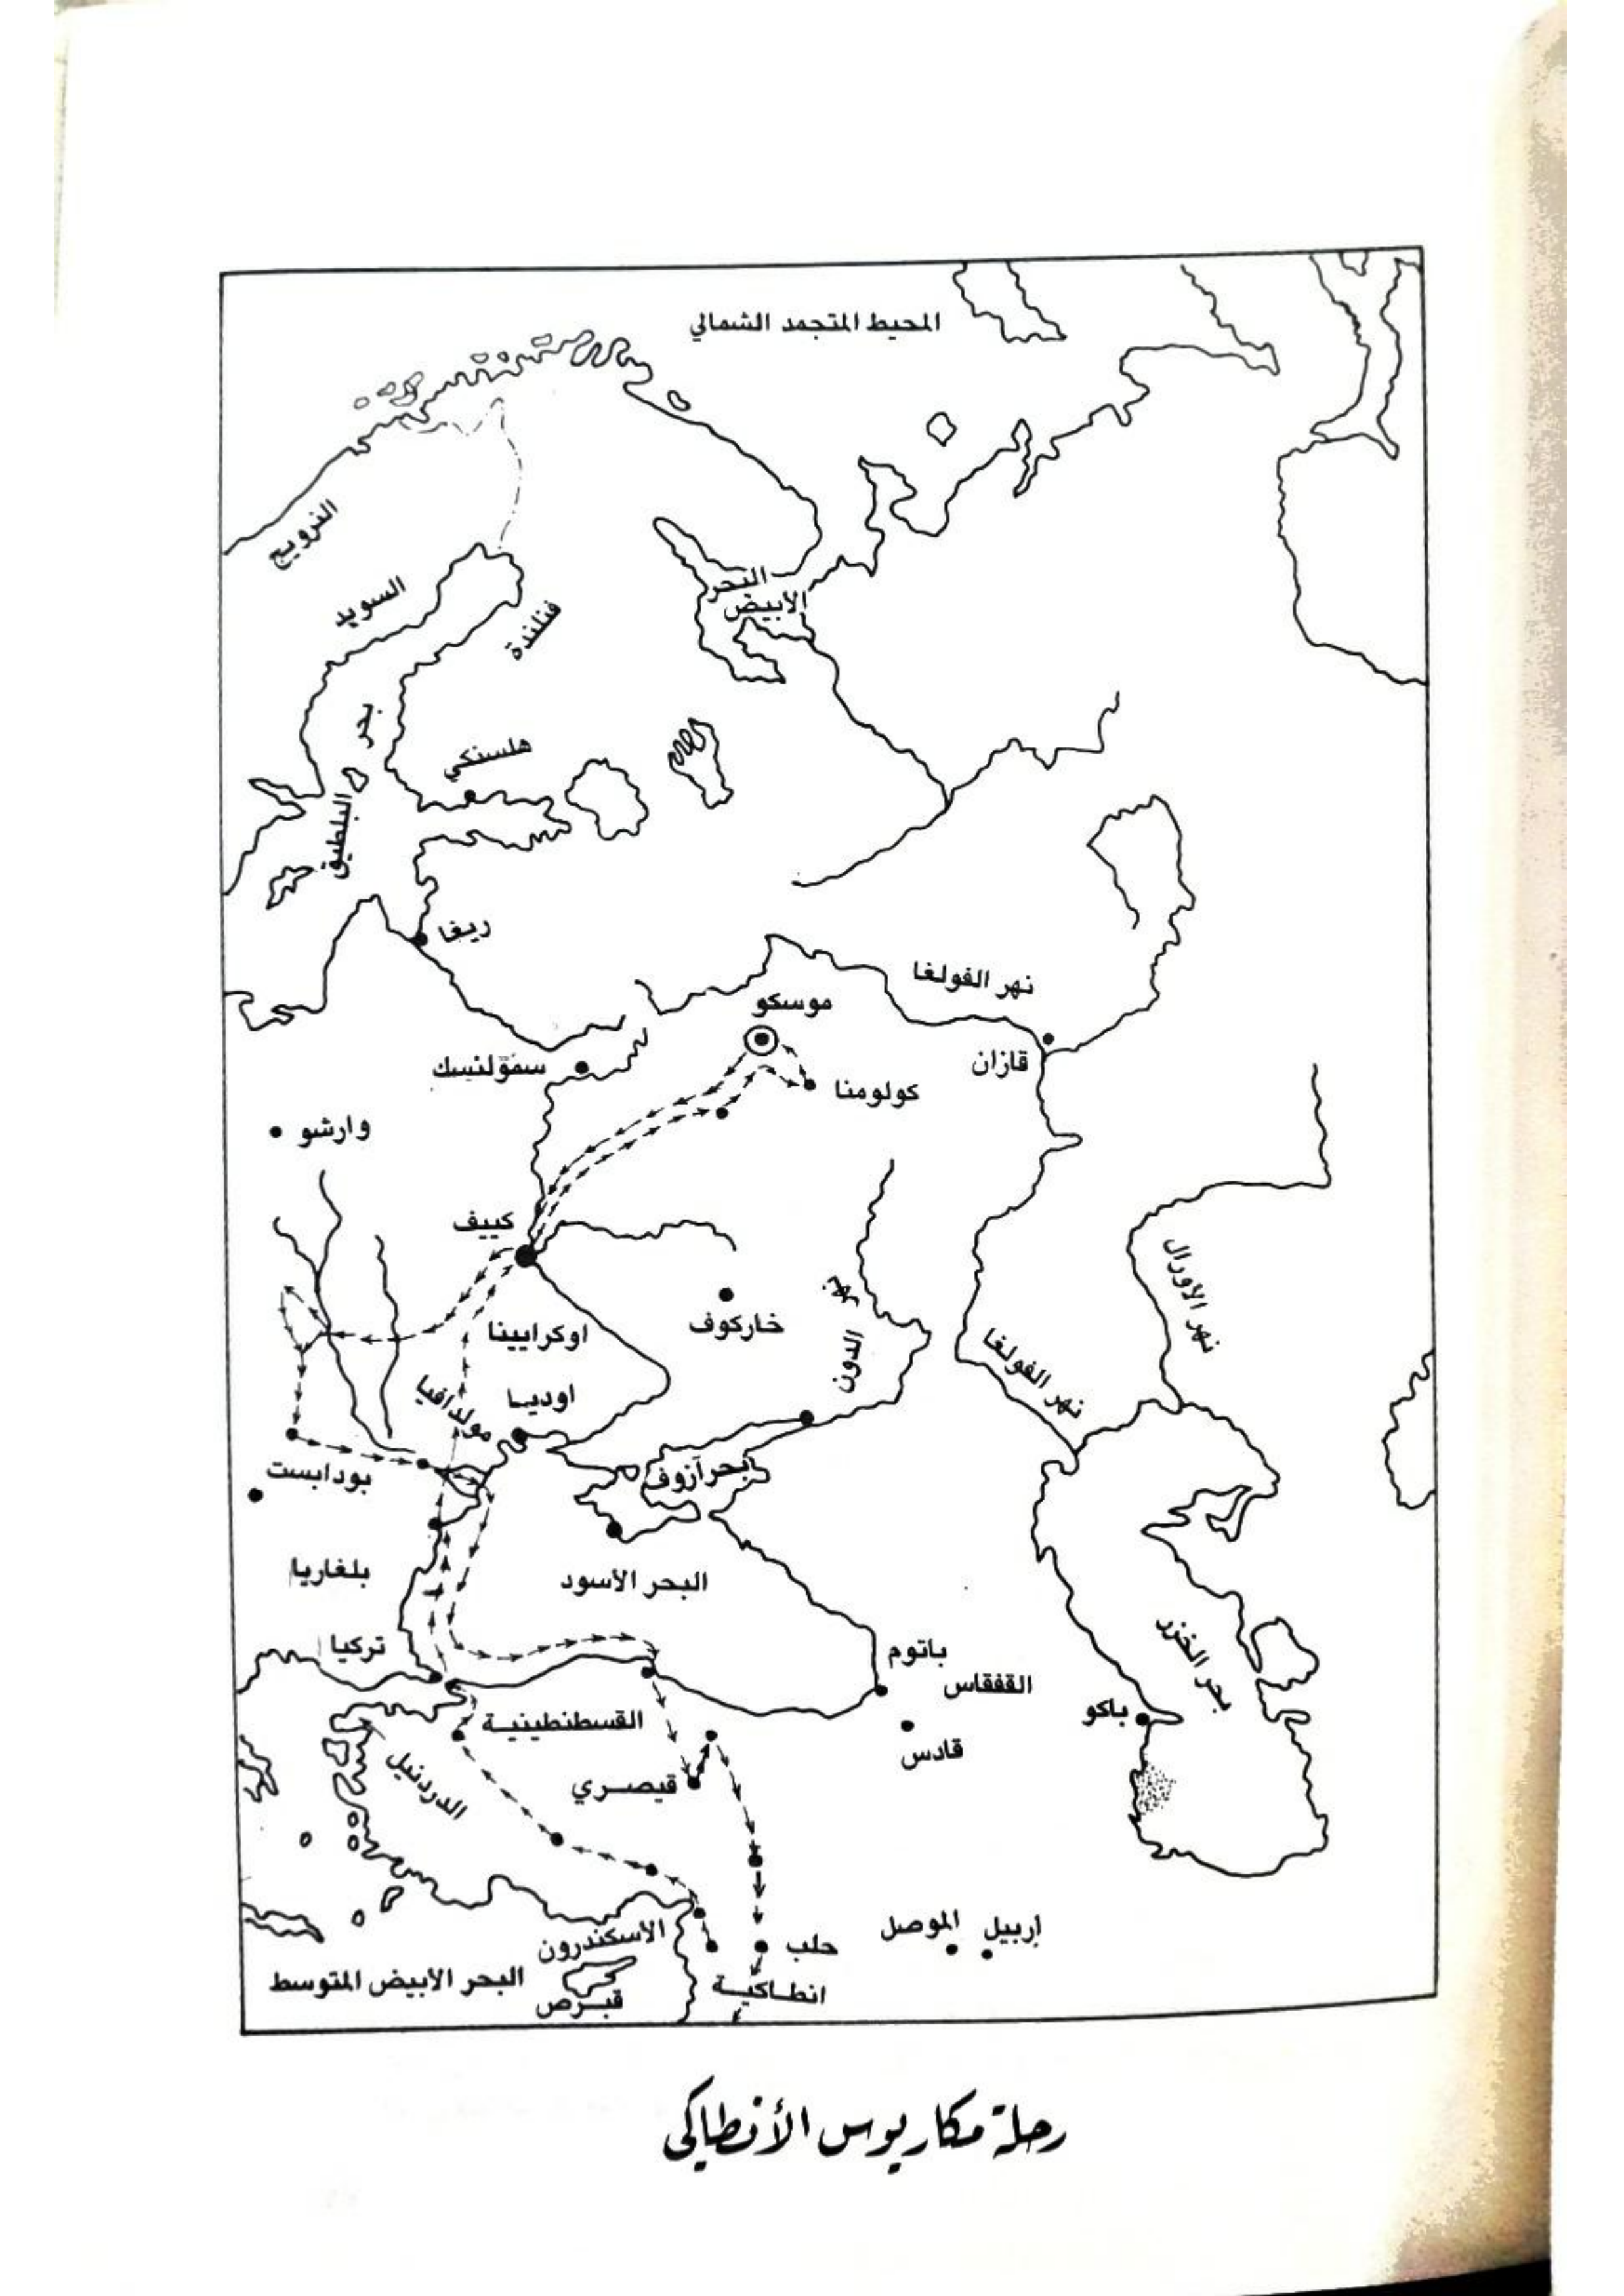 المحيط المتجمد الشمالي
النرويج
السويد
فنلندة
البحر
الأبيض
بحر
البلطيق
هلسنكي
ريغا
نهر الفولغا
موسكو
قازان
سمولنسك
كولومنا
وارشو
كييف
نهر الأورال
خاركوف
نهر
الدون
نهر الفولغا
اوكرايينا
مولدافيا
اوديسا
بحر آزوف
بودابست
بلغاريا
البحر الأسود
تركيا
باتوم
القفقاس
بحر الخزر
باكو
القسطنطينية
قادس
الدردنيل
قيصري
الموصل
إربيل
حلب
الاسكندرون
انطاكية
البحر الابيض المتوسط
قبرص
رحلة مكاريوس الأنطاكي